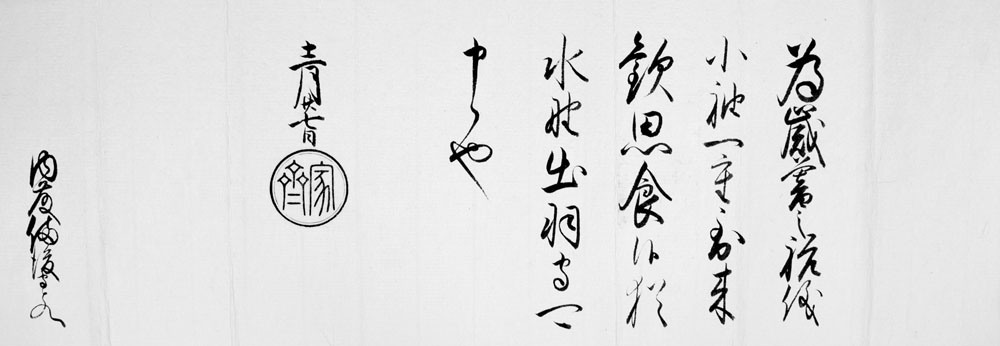 為歳暮之祝儀
小袖一重到来
歓思食候猶
水野出羽守可
申候也
十二月廿七日
家齊
内藤備後守とのへ